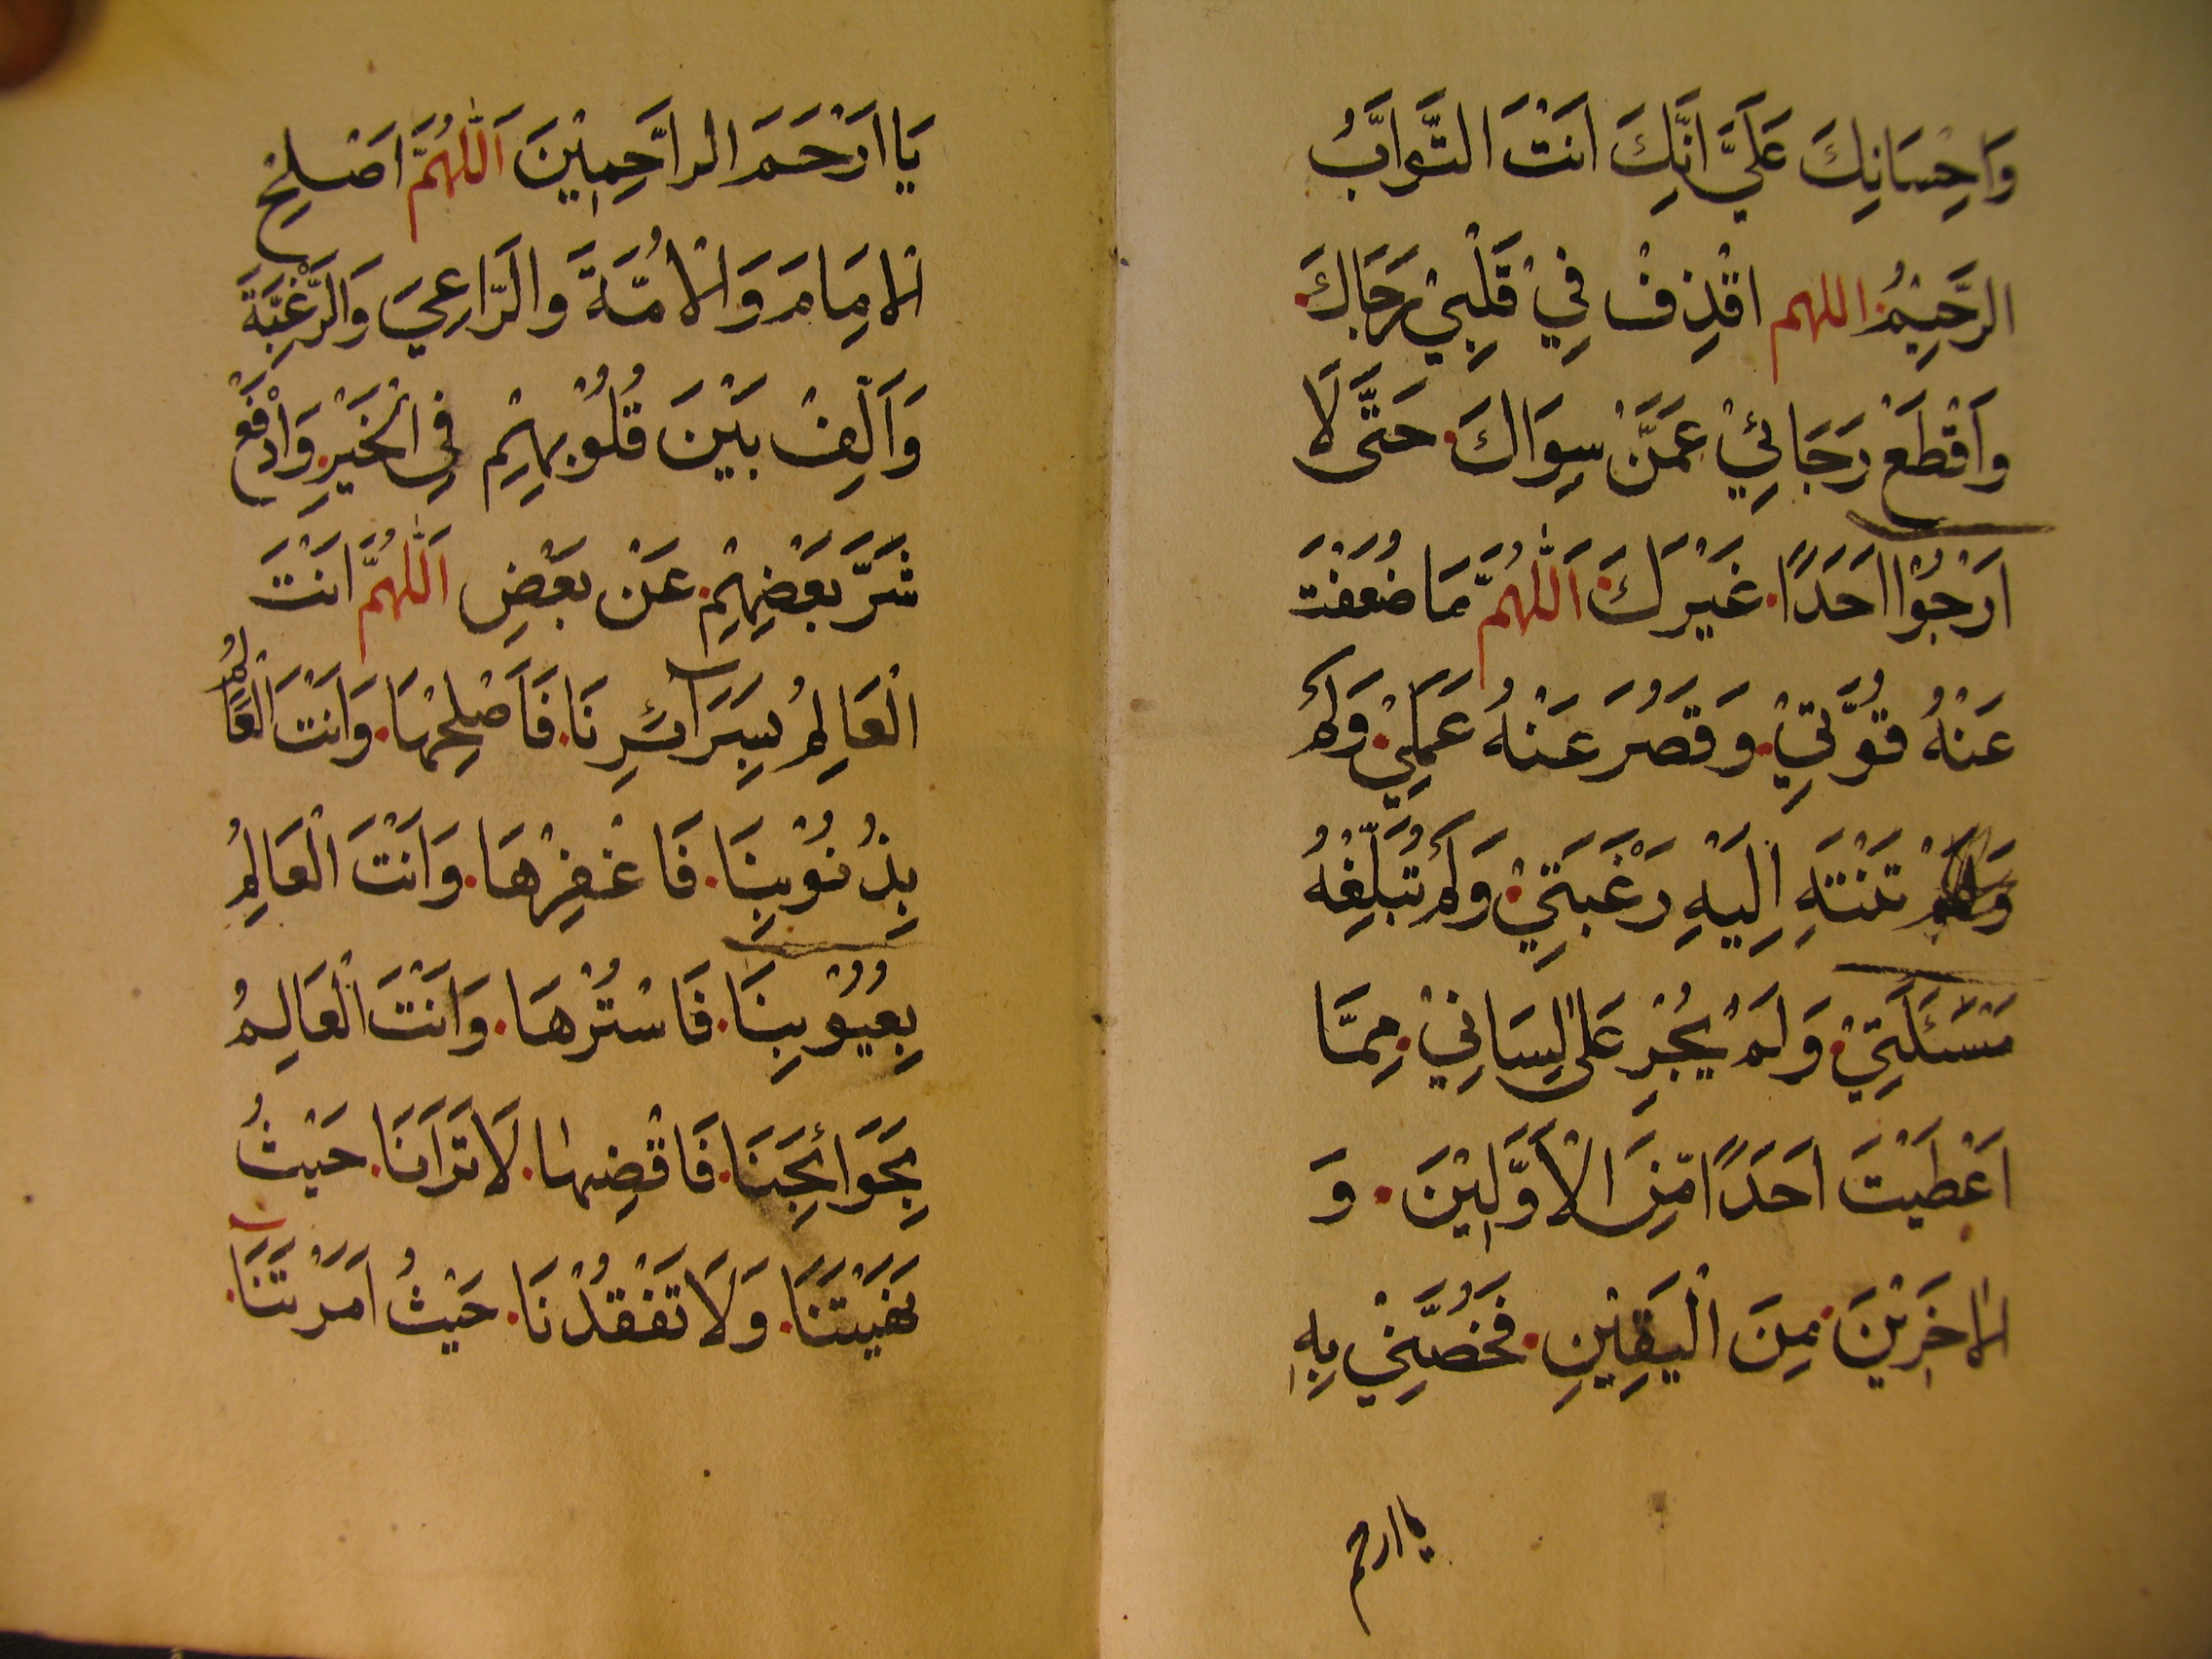 وَاِحْسَانِكَ عَلَيَّ اِنَّكَ اَنْتَ التَّوَّابُ
الرَّحِيْمُ اللهم اقْذِفْ فِيْ قَلْبِيْ رَجَاكَ
وَاقْطَعْ رَجَائِيْ عَمَّنْ سِوَاكَ حَتَّى لَا
اَرْجُوْا اَحَدًا غَيْرَكَ اَللّٰهُمَّ مَا ضَعُفَتْ
عَنْهُ قُوَّتِيْ وَقَصُرَ عَنْهُ عَمَلِيْ وَلَمْ
تَنْتَهِ اِلَيْهِ رَغْبَتِيْ وَلَمْ تَبْلُغْهُ
مَسْئَلَتِيْ وَلَمْ يُجْرِ عَلٰى لِسَانِيْ مِمَّا
اَعْطَيْتَ اَحَدًا مِّنَ الْاَوَّلِيْنَ وَ
الْاٰخَرِيْنَ مِنَ الْيَقِيْنِ فَخُصَّنِيْ بِهٖ
يا ارحم
يَا اَرْحَمَ الرَّاحِمِيْنَ اَللّٰهُمَّ اَصْلِحِ
الْاِمَامَ وَالْاُمَّةَ وَالرَّاعِيَ وَالرَّعِيَّةَ
وَاَلِّفْ بَيْنَ قُلُوْبِهِمْ فِي الْخَيْرِ وَادْفَعْ
شَرَّ بَعْضِهِمْ عَنْ بَعْضٍ اَللّٰهُمَّ اَنْتَ
الْعَالِمُ بِسَرَآئِرِنَا فَاَصْلِحْهَا وَاَنْتَ الْعَالِمُ
بِذُنُوْبِنَا فَاغْفِرْهَا وَاَنْتَ الْعَالِمُ
بِعُيُوْبِنَا فَاسْتُرْهَا وَاَنْتَ الْعَالِمُ
بِحَوَائِجِنَا فَاقْضِهَا لَا تَرَانَا حَيْثُ
نَهَيْتَنَا وَلَا تَفْقُدْنَا حَيْثُ اَمَرْتَنَا